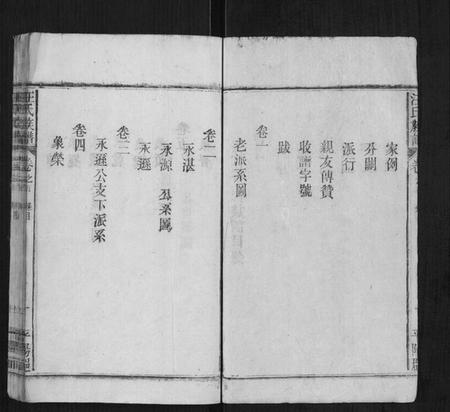 家例
外關
派行
親友傳贊
收譜字號
跋
卷一
老派系圖
卷二
永湛
永源 公系圖
永遜
卷三
永遜公支下派系
卷四
象榮